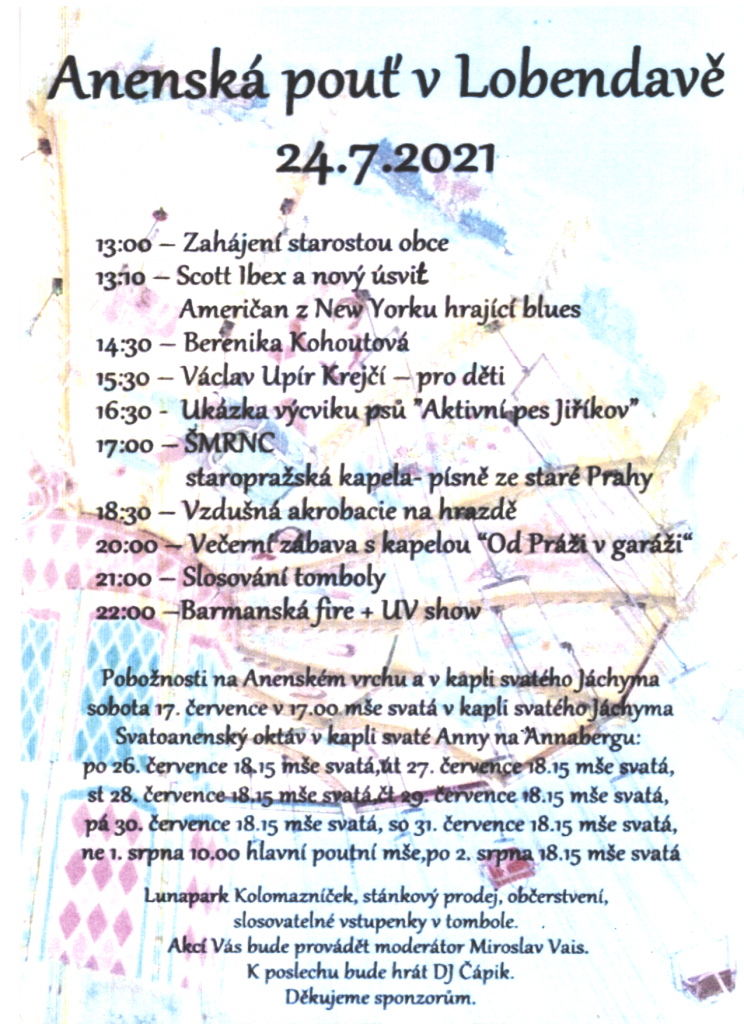 Anenská pouť v Lobendavě
24.7.2021
13:00 – Zahájení starostou obce
13:10 – Scott Ibex a nový úsvit
Američan z New Yorku hrající blues
14:30 – Berenika Kohoutová
15:30 – Václav Upír Krejčí – pro děti
16:30 - Ukázka výcviku psů "Aktivní pes Jiříkov"
17:00 – ŠMRNC
staropražská kapela- písně ze staré Prahy
18:30 – Vzdušná akrobacie na hrazdě
20:00 – Večerní zábava s kapelou “Od Práži v garáži“
21:00 – Slosování tomboly
22:00 –Barmanská fire + UV show
Pobožnosti na Anenském vrchu a v kapli svatého Jáchyma
sobota 17. července v 17.00 mše svatá v kapli svatého Jáchyma
Svatoanenský oktáv v kapli svaté Anny na Annabergu:
po 26. července 18.15 mše svatá,út 27. července 18.15 mše svatá,
st 28. července 18.15 mše svatá,čt 29. července 18.15 mše svatá,
pá 30. července 18.15 mše svatá, so 31. července 18.15 mše svatá,
ne 1. srpna 10.00 hlavní poutní mše,po 2. srpna 18.15 mše svatá
Lunapark Kolomazníček, stánkový prodej, občerstvení,
slosovatelné vstupenky v tombole.
Akcí Vás bude provádět moderátor Miroslav Vais.
K poslechu bude hrát DJ Čápik.
Děkujeme sponzorům.